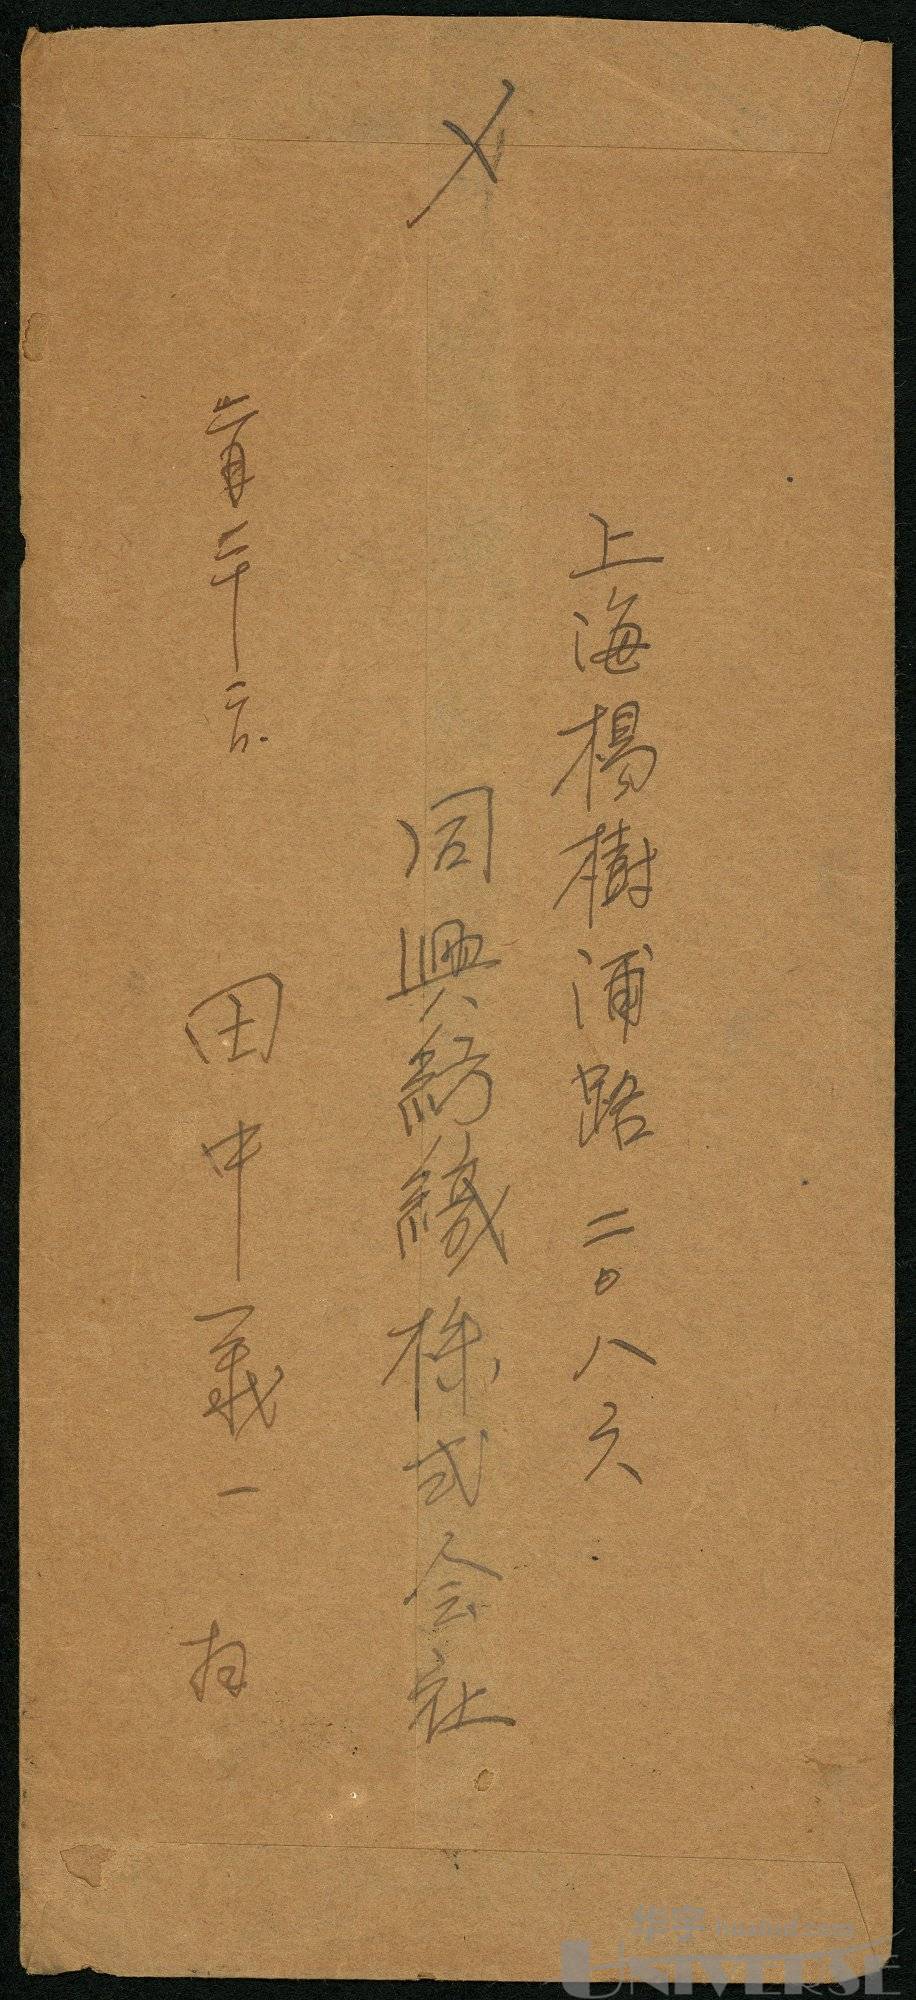 〆
上海楊樹浦路二〇八六
同興紡織株式会社
六月二十六日
田中義一拝
华宇
huabid.com
UNIVERSE